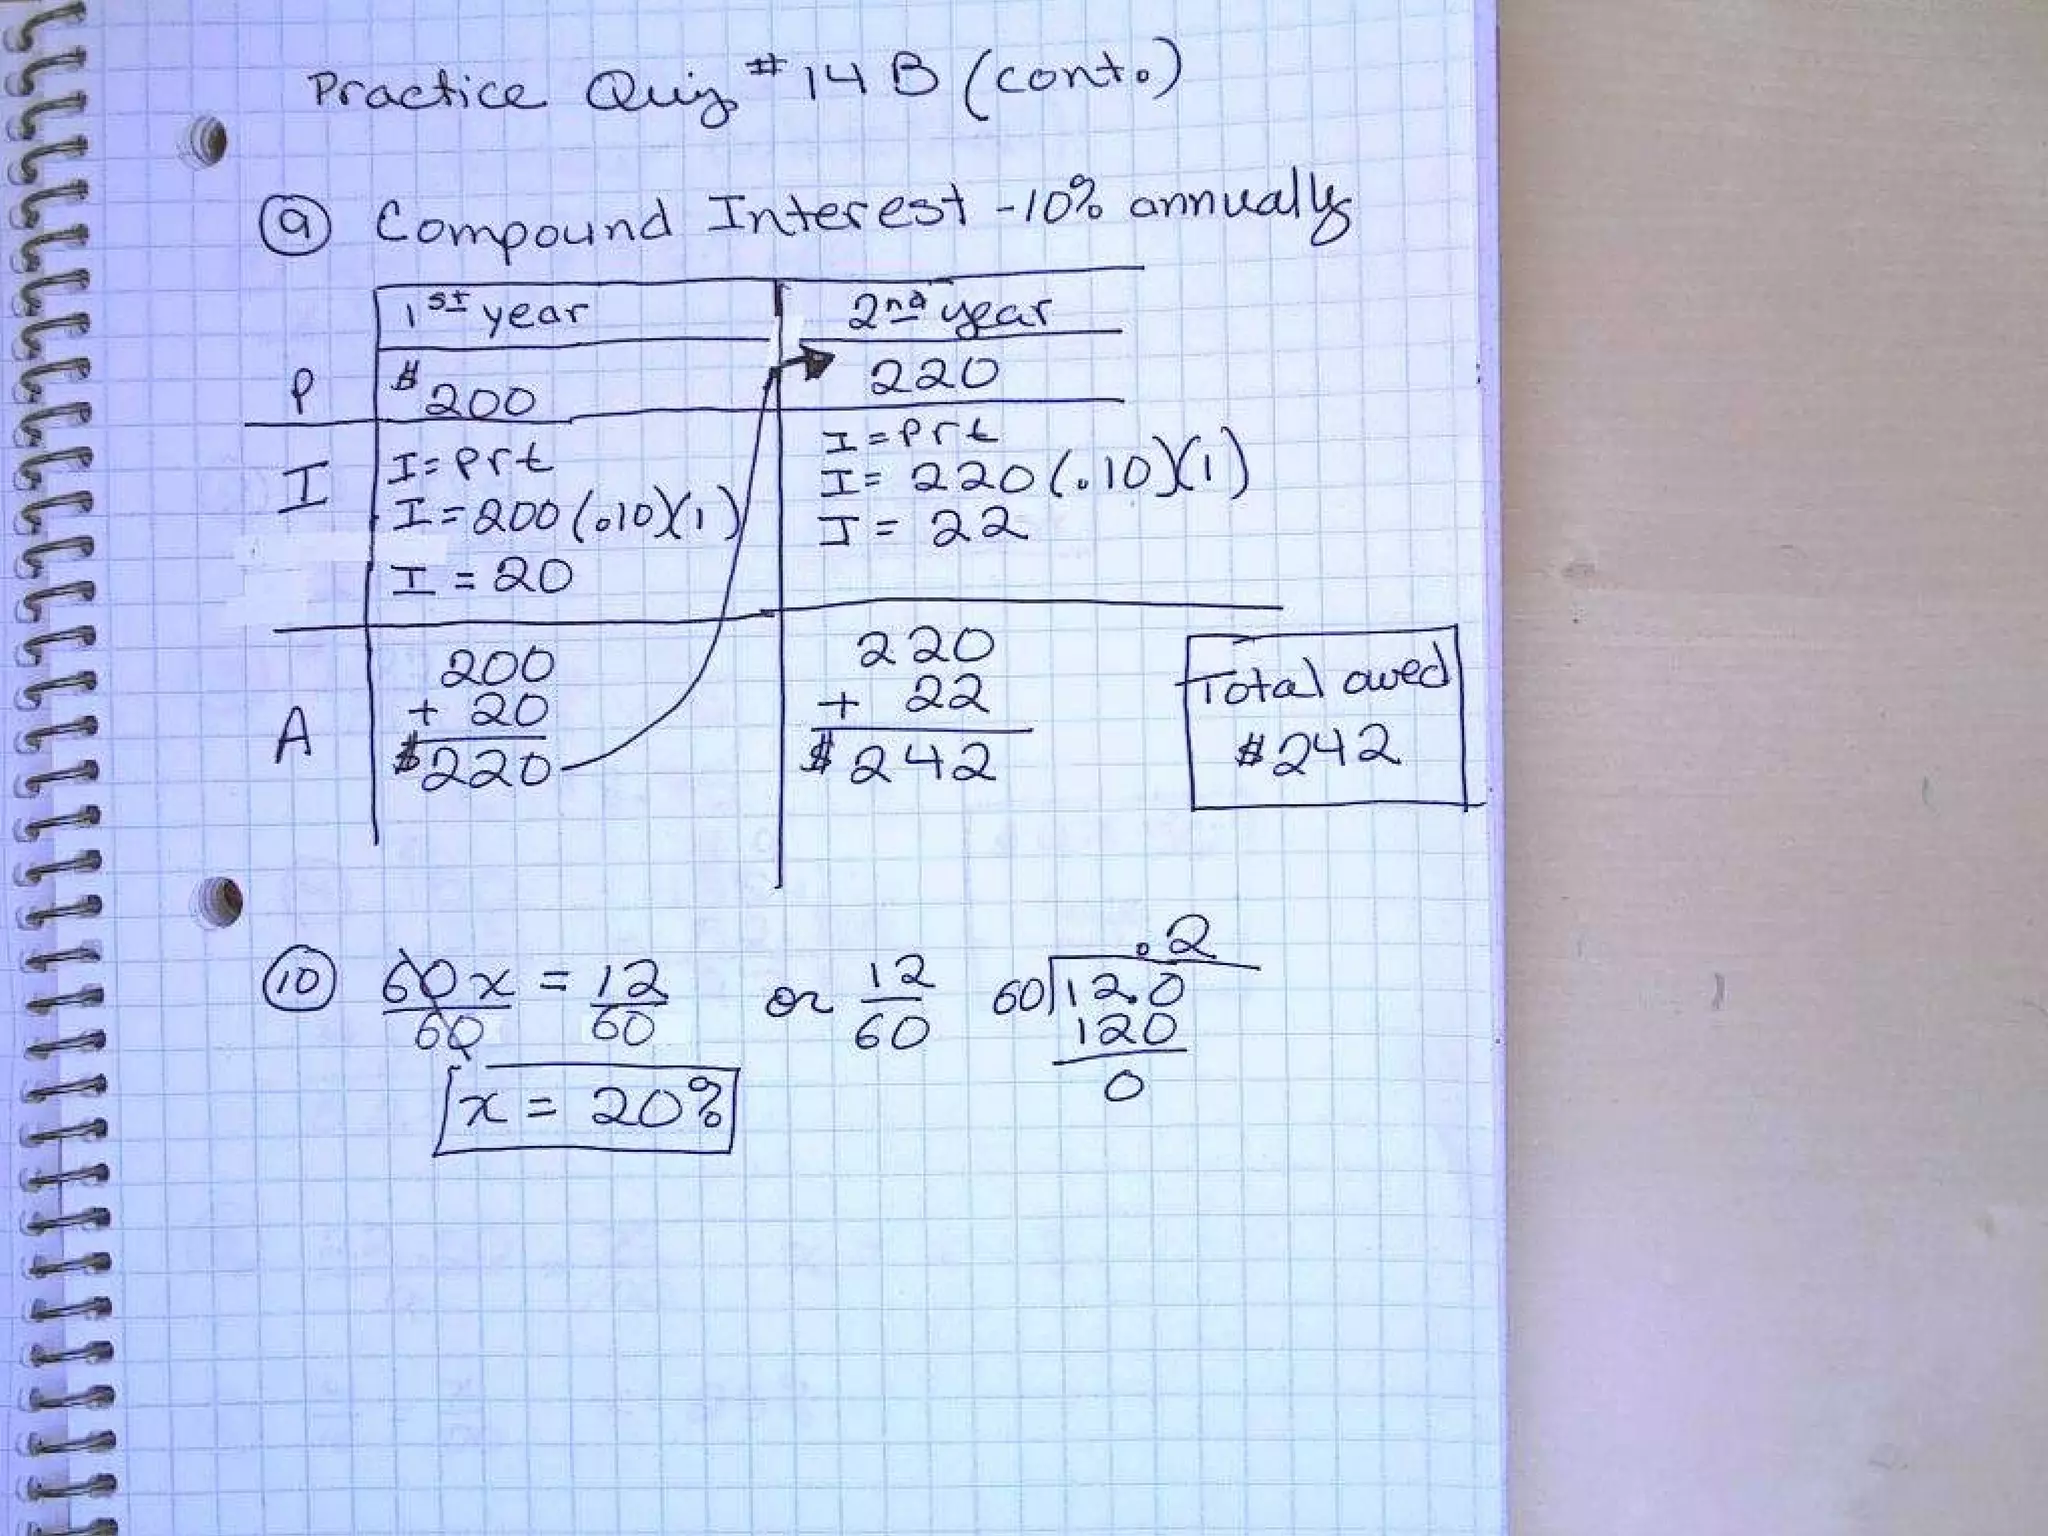 Practice Quiz #14 B (cont.)
9 Compound Interest - 10% annually
1st year 2nd year
P $200 220
I I = Prt I = Prt
I = 200 (.10)(1) I = 220 (.10)(1)
I = 20 I = 22
A 200 220
+ 20 + 22
$220 $242
Total owed
$242
10 60x = 12 or 12 .2
60 60 60 60 12.0
120
0
x = 20%